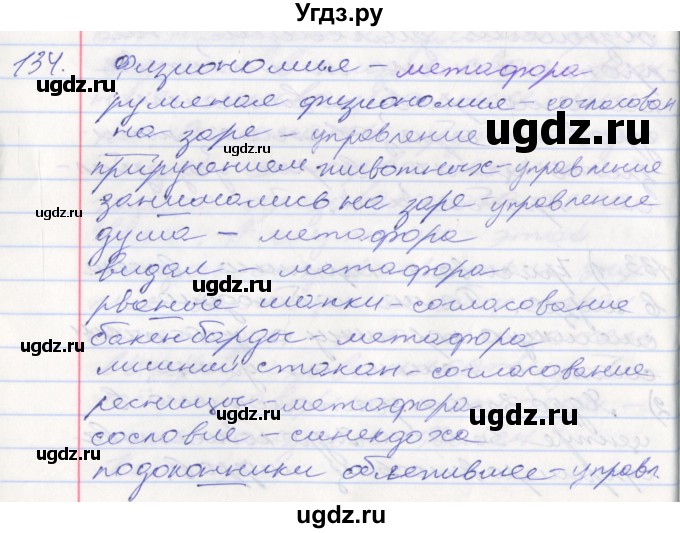 Угдз.ру
134. Физиономья – метафора
румяная физиономия – согласован
на заре – управление
приручением животных – управление
занимались на заре – управление
душа – метафора
видал – метафора
рваные шапки – согласование
бакенбарды – метафора
лишний стакан – согласование
ресницы – метафора
сословие – синекдоха
подоконники облепившее – управл
ugdz.ru
ugdz.ru
ugdz.ru
ugdz.ru
ugdz.ru
ugdz.ru
ugdz.ru
ugdz.ru
ugdz.ru